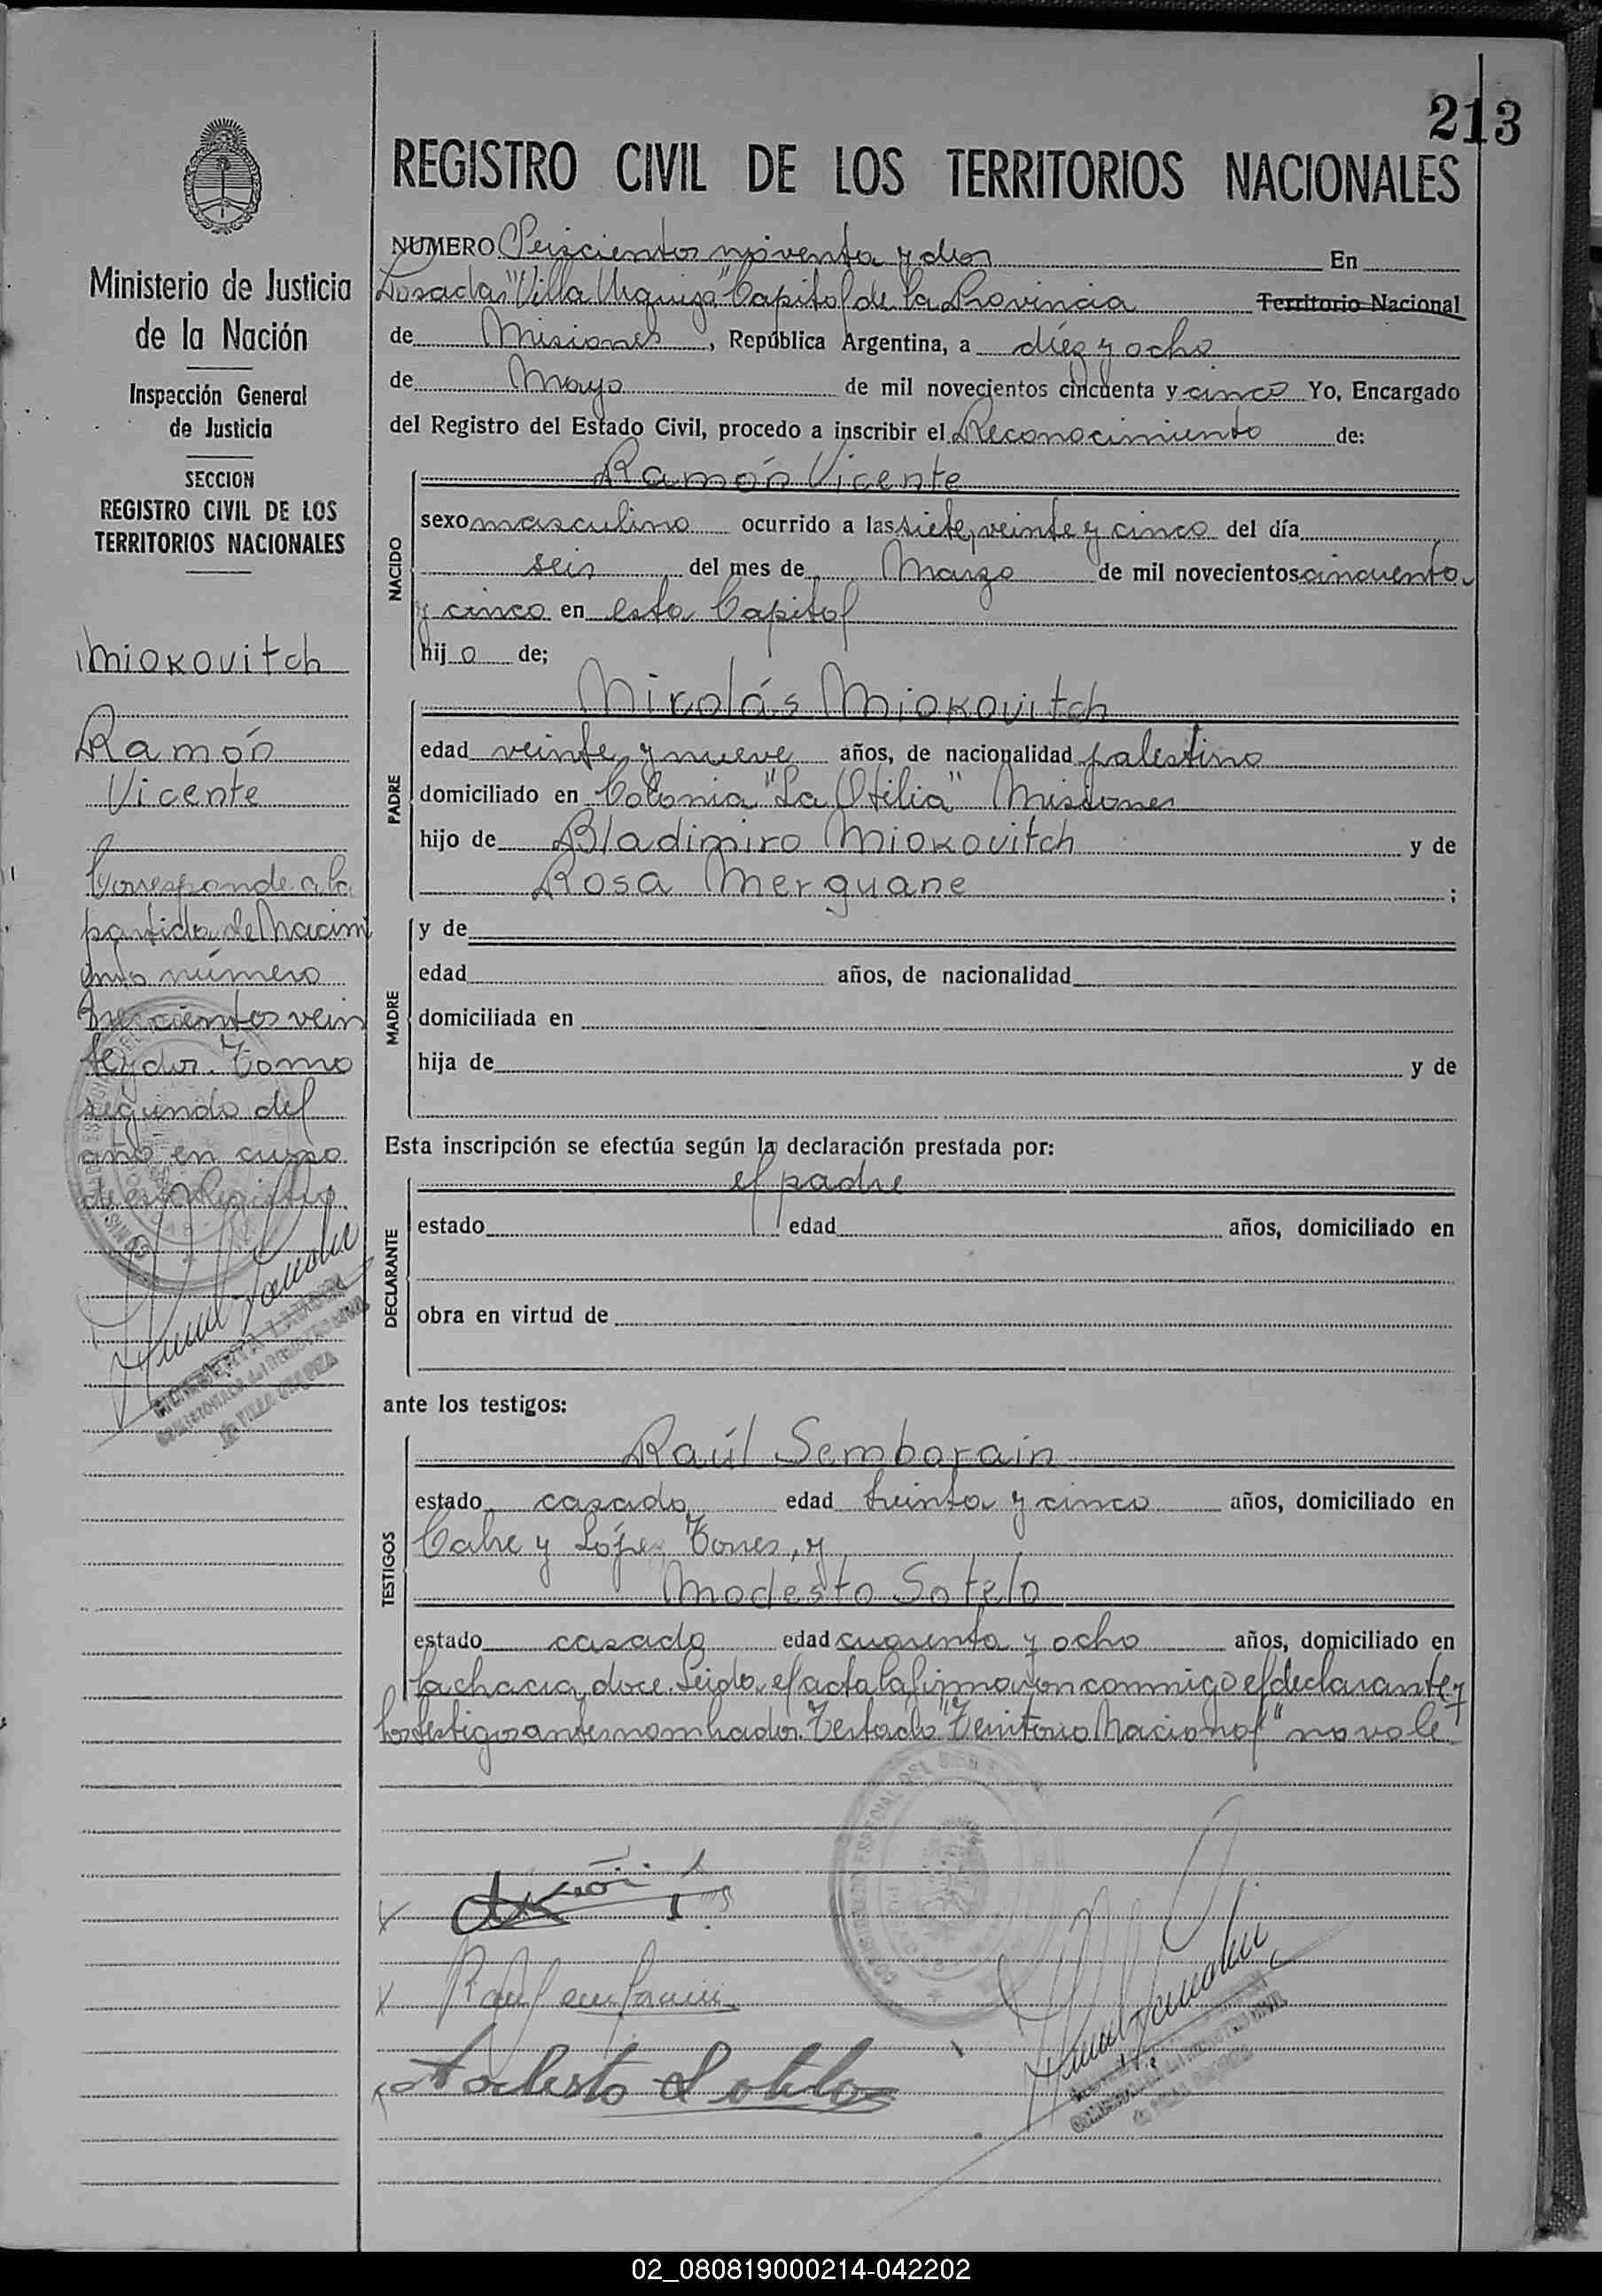 213
REGISTRO CIVIL DE LOS TERRITORIOS NACIONALES
Ministerio de Justicia
de la Nación
Inspección General
de Justicia
SECCION
REGISTRO CIVIL DE LOS
TERRITORIOS NACIONALES
Miokovitch
Ramón
Vicente
Corresponde a la
partida de Nacimi
ento número
trescientos vein
te y dos. Tomo
segundo del
año en curso
de este Registro.
NUMERO Seiscientos noventa y dos En
Posadas "Villa Urquiza" Capital de la Provincia Territorio Nacional
de Misiones, República Argentina, a diez y ocho
de Mayo de mil novecientos cincuenta y cinco Yo, Encargado
del Registro del Estado Civil, procedo a inscribir el Reconocimiento de:
NACIDO
Ramón Vicente
sexo masculino ocurrido a las siete, veinte y cinco del día
seis del mes de Marzo de mil novecientos cincuenta
y cinco en esta Capital
hijo de;
PADRE
Nicolás Miokovitch
edad veinte y nueve años, de nacionalidad palestino
domiciliado en Colonia "La Otilia" Misiones
hijo de Bladimiro Miokovitch y de
Rosa Merguane ;
MADRE
y de
edad años, de nacionalidad
domiciliada en
hija de y de
Esta inscripción se efectúa según la declaración prestada por:
DECLARANTE
el padre
estado edad años, domiciliado en
obra en virtud de
ante los testigos:
TESTIGOS
Raúl Semborain
estado casado edad treinta y cinco años, domiciliado en
y López Torres, y
Modesto Sotelo
estado casado edad cuarenta y ocho años, domiciliado en
la chacra doce. Leido el acta la firmaron conmigo el declarante y
los testigos antes nombrados. Testado "Territorio Nacional" no vale
Modesto Sotelo
02_080819000214-042202